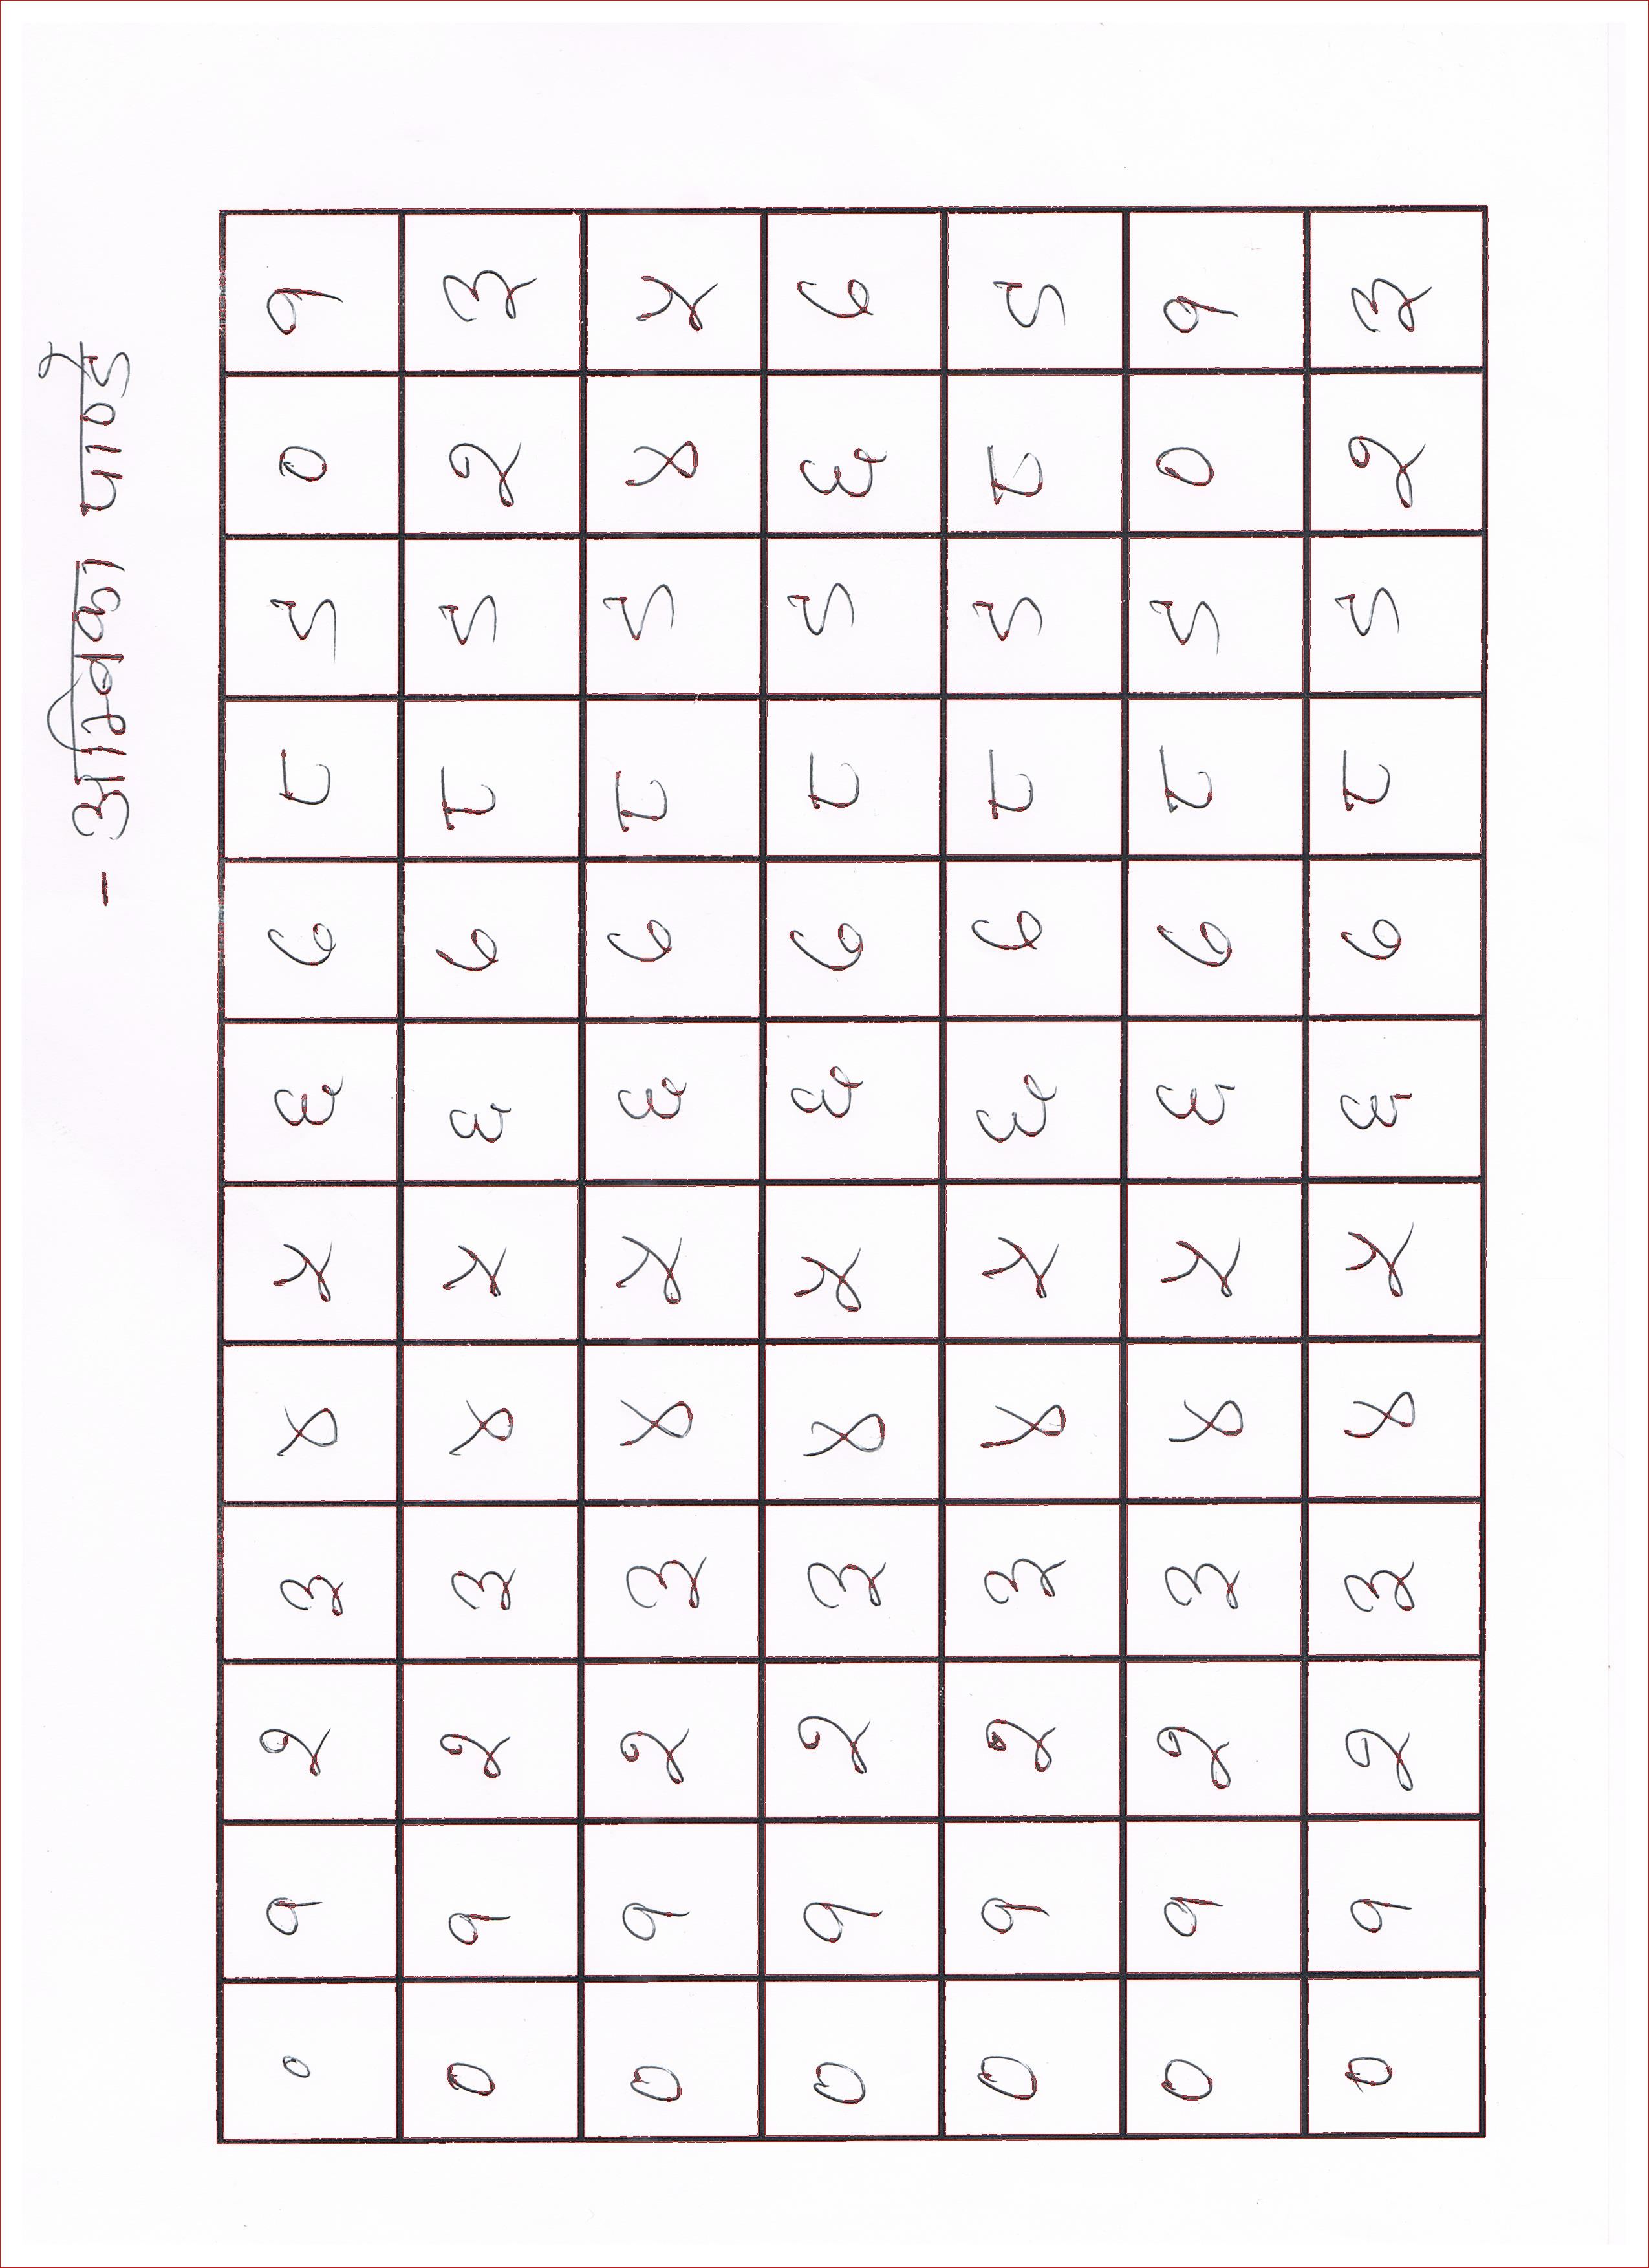 - आश्विका पाण्डे
० १ २ ३ ४ ५ ६ ७ ८ ९ ० १
० १ २ ३ ४ ५ ६ ७ ८ ९ २ ३
० १ २ ३ ४ ५ ६ ७ ८ ९ ४ ५
० १ २ ३ ४ ५ ६ ७ ८ ९ ६ ७
० १ २ ३ ४ ५ ६ ७ ८ ९ ८ ९
० १ २ ३ ४ ५ ६ ७ ८ ९ ० १
० १ २ ३ ४ ५ ६ ७ ८ ९ २ ३